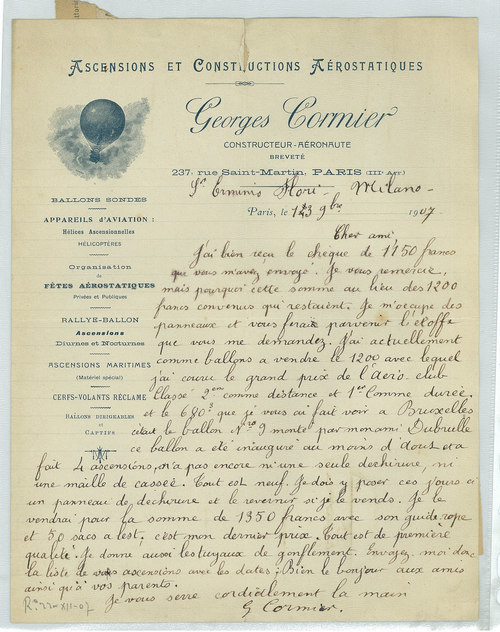 ASCENSIONS ET CONSTRUCTIONS AÉROSTATIQUES
Georges Cormier
CONSTRUCTEUR-AÉRONAUTE
BREVETÉ
237, rue Saint-Martin, PARIS (III Arr)
Sr Erminio Flori - Milano -
Paris, le 9bre 1907
BALLONS SONDES
APPAREILS d'AVIATION :
Hélices Ascensionnelles
HÉLICOPTÈRES
Organisation
de
FÊTES AÉROSTATIQUES
Privées et Publiques
RALLYE-BALLON
Ascensions
Diurnes et Nocturnes
ASCENSIONS MARITIMES
(Matériel spécial)
CERFS-VOLANTS RÉCLAME
BALLONS DIRIGEABLES
et
CAPTIFS
Cher ami
J'ai bien reçu le chèque de 1150 francs
que vous m'avez envoyé. Je vous remercie,
mais pourquoi cette somme au lieu des 1200
francs convenus qui restaient. Je m'occupe des
panneaux et vous ferais parvenir l'étoffe
que vous me demandez. J'ai actuellement
comme ballons a vendre le 1200 avec lequel
j'ai couru le grand prix de l'aero-club
Classé 2em comme distance et 1er Comme durée.
et le 680 que je vous ai fait voir a Bruxelles
c'etait le ballon No 9 monté par mon ami Dubrulle
ce ballon a été inauguré au moins d'Aout et a
fait 4 ascensions, n'a pas encore ni une seule dechirure, ni
une maille de cassée. Tout est neuf. Je dois y poser ces jours ci
un panneau de dechirure et le revernir si je le vends. Je le
vendrai pour la somme de 1350 francs avec son guide rope
et 50 sacs a lest. c'est mon dernier prix. Tout est de première
qualité. Je donne aussi les tuyaux de gonflement. Envoyez moi donc
la liste de vos ascensions avec les dates. Bien le bonjour aux amis
ainsi qu'à vos parents.
Je vous serre cordialement la main
G Cormier.
Ro 22-XII-07